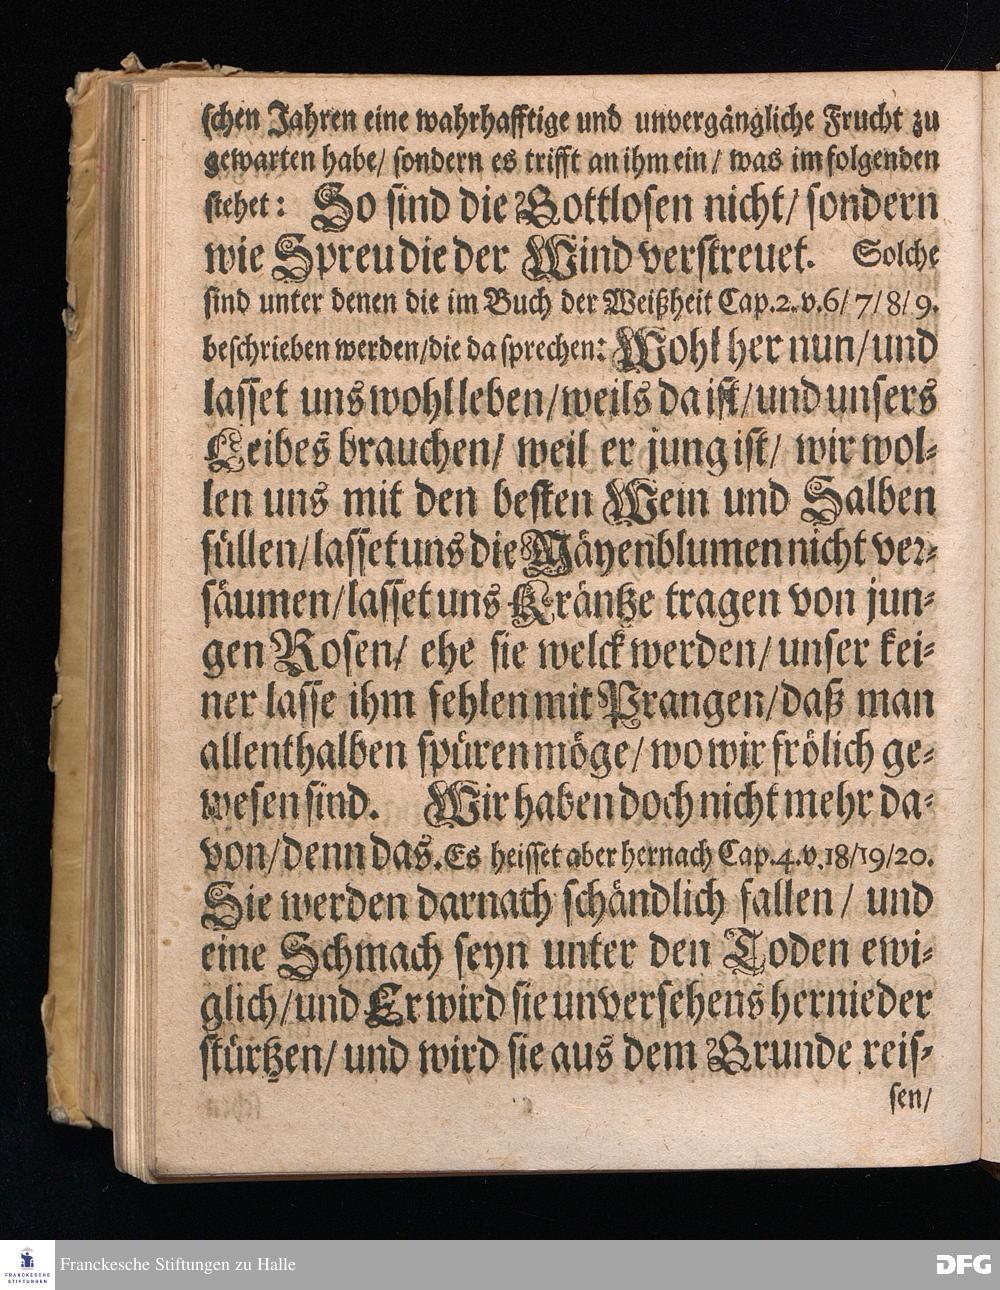 schen Jahren eine wahrhafftige und unvergängliche Frucht zu
gewarten habe/ sondern es trifft an ihm ein/ was im folgenden
stehet: So sind die Gottlosen nicht/ sondern
wie Spreu die der Wind verstreuet. Solche
sind unter denen die im Buch der Weißheit Cap.2.v.6/7/8/9.
beschrieben werden/die da sprechen: Wohl her nun/und
lasset uns wohl leben/weils da ist/und unsers
Leibes brauchen/ weil er jung ist/ wir wol-
len uns mit den besten Wein und Salben
füllen/lasset uns die Mäyenblumen nicht ver-
säumen/lasset uns Kräntze tragen von jun-
gen Rosen/ ehe sie welck werden/unser kei-
ner lasse ihm fehlen mit Prangen/daß man
allenthalben spüren möge/wo wir frölich ge-
wesen sind. Wir haben doch nicht mehr da-
von/denn das. Es heisset aber hernach Cap.4.v.18/19/20.
Sie werden darnach schändlich fallen/ und
eine Schmach seyn unter den Toden ewi-
glich/und Er wird sie unversehens hernieder
stürtzen/und wird sie aus dem Grunde reis-
sen/
FRANCKESCHE
STIFTUNGEN
Franckesche Stiftungen zu Halle
DFG